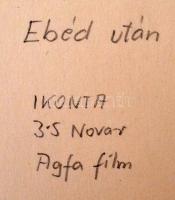 Ebéd után
IKONTA
3.5 Novar
Agfa film